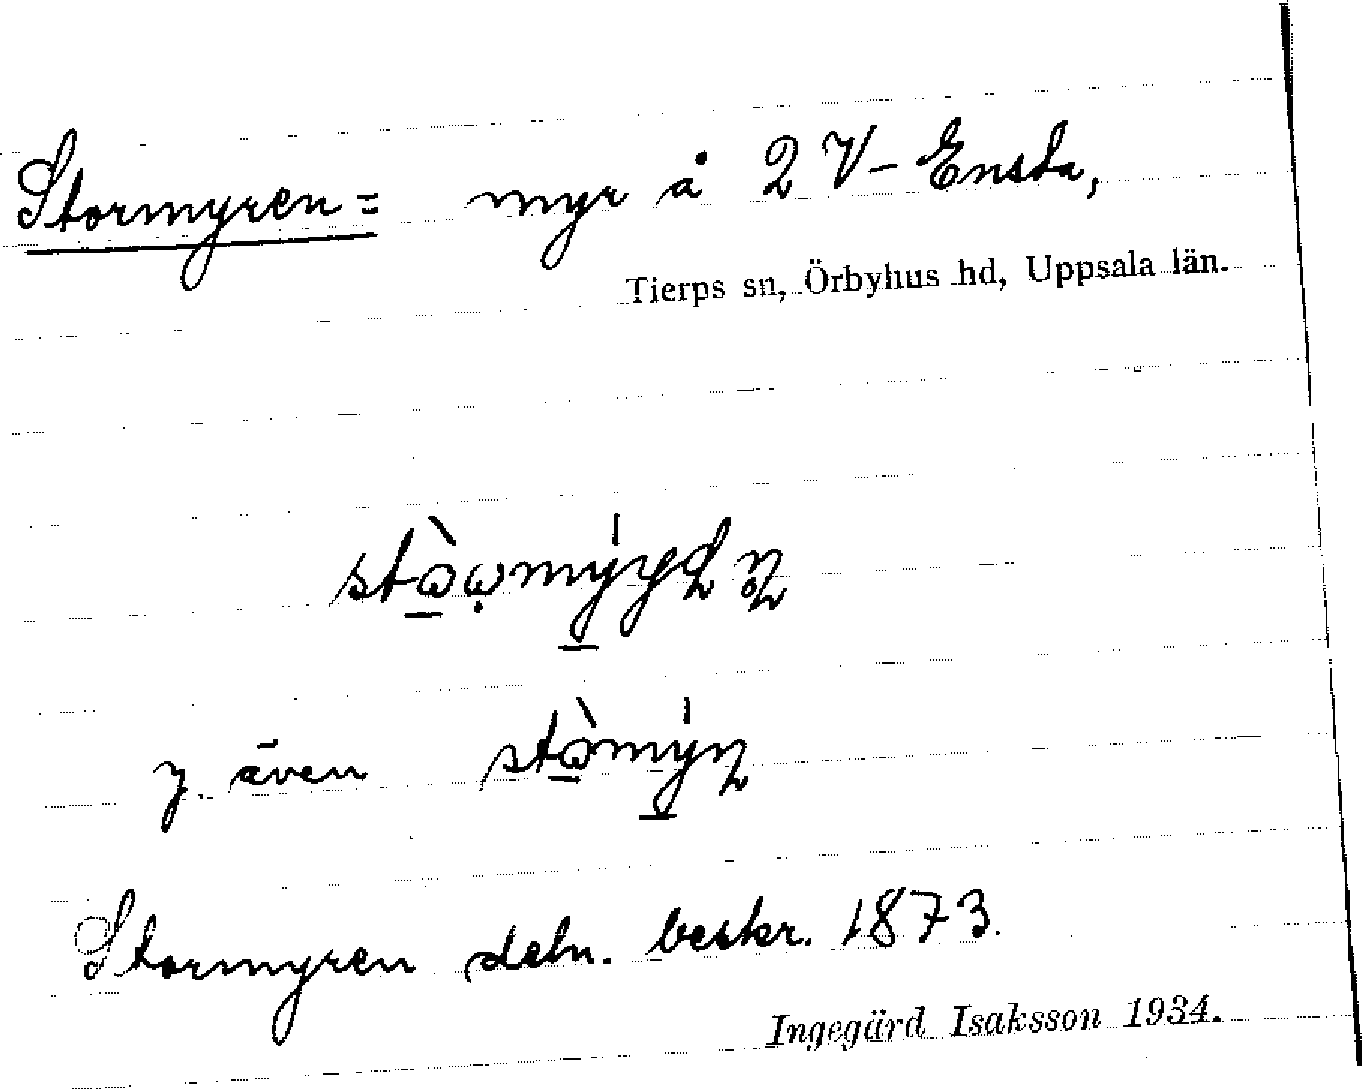 Stormyren = myr å 2 V-Ensta,
Tierps sn, Örbyhus hd, Uppsala län.
y. även
Stormyren deln. beskr. 1873.
Ingegärd Isaksson 1934.